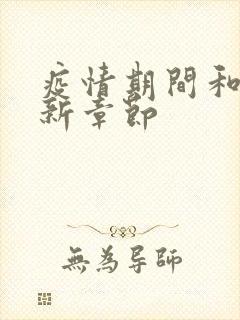 疫情期間和
新章節
無為导师